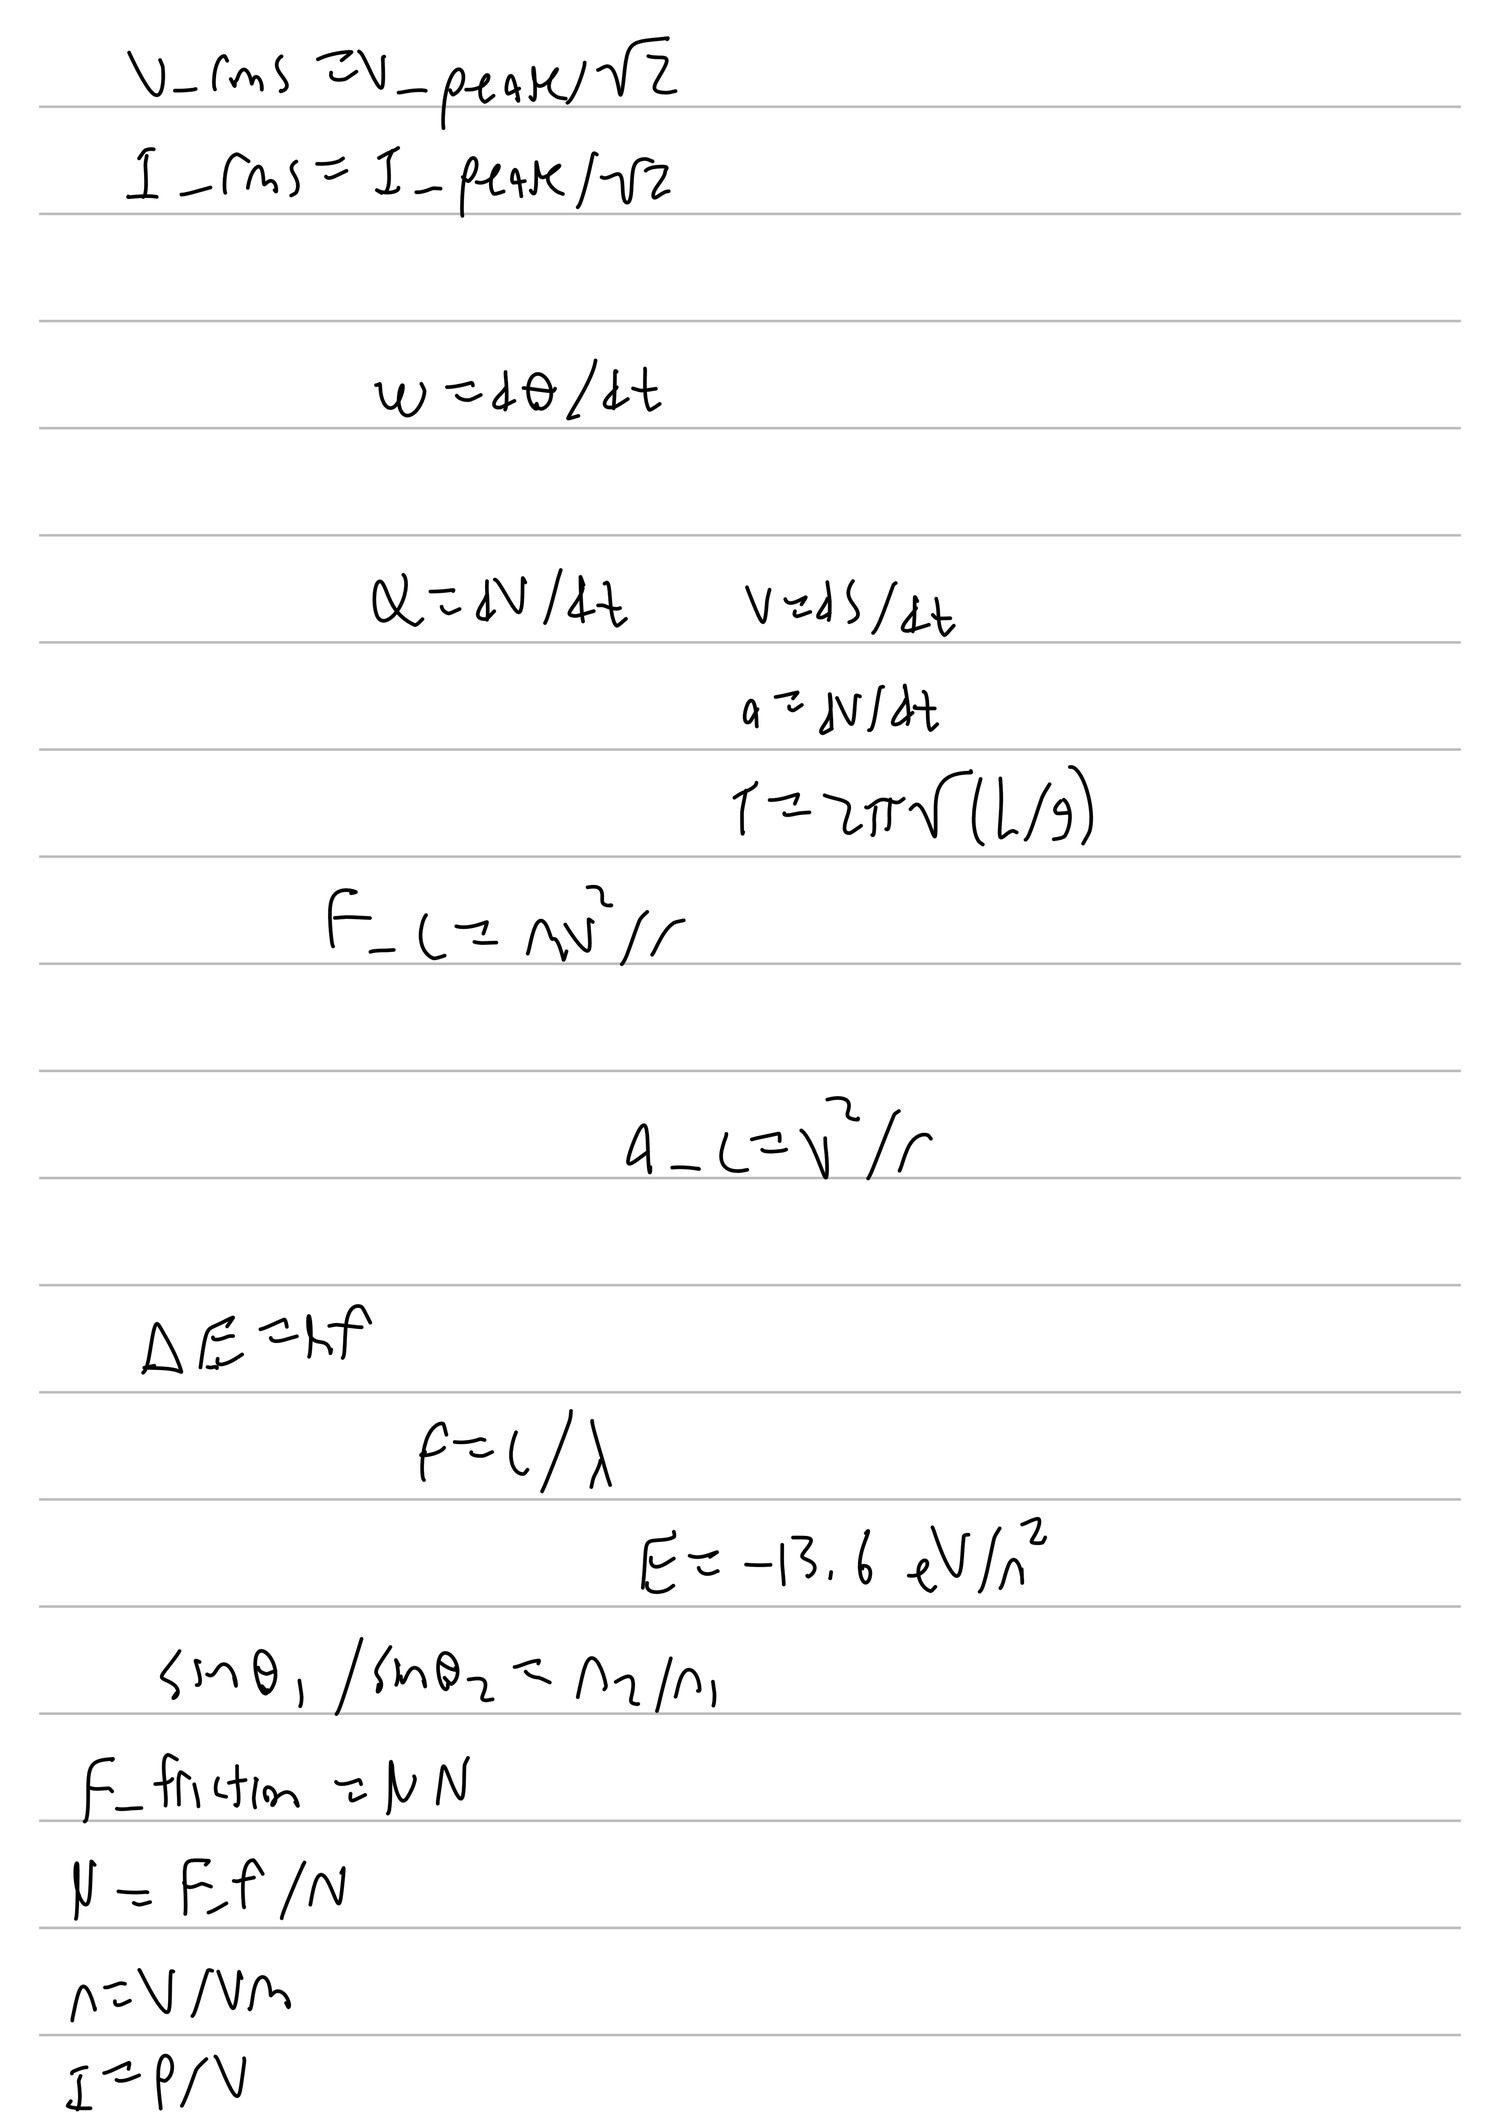 V_rms = V_peak/√2
I_rms = I_peak/√2
ω = dθ/dt
Q = dV/dt v = ds/dt
a = dv/dt
T = 2π√(L/g)
F_c = mv²/r
a_c = v²/r
ΔE = hf
f = c/λ
E = -13.6 eV/n²
sinθ₁/sinθ₂ = n₂/n₁
F_friction = μN
μ = F_f/N
n = V/Vm
I = P/V